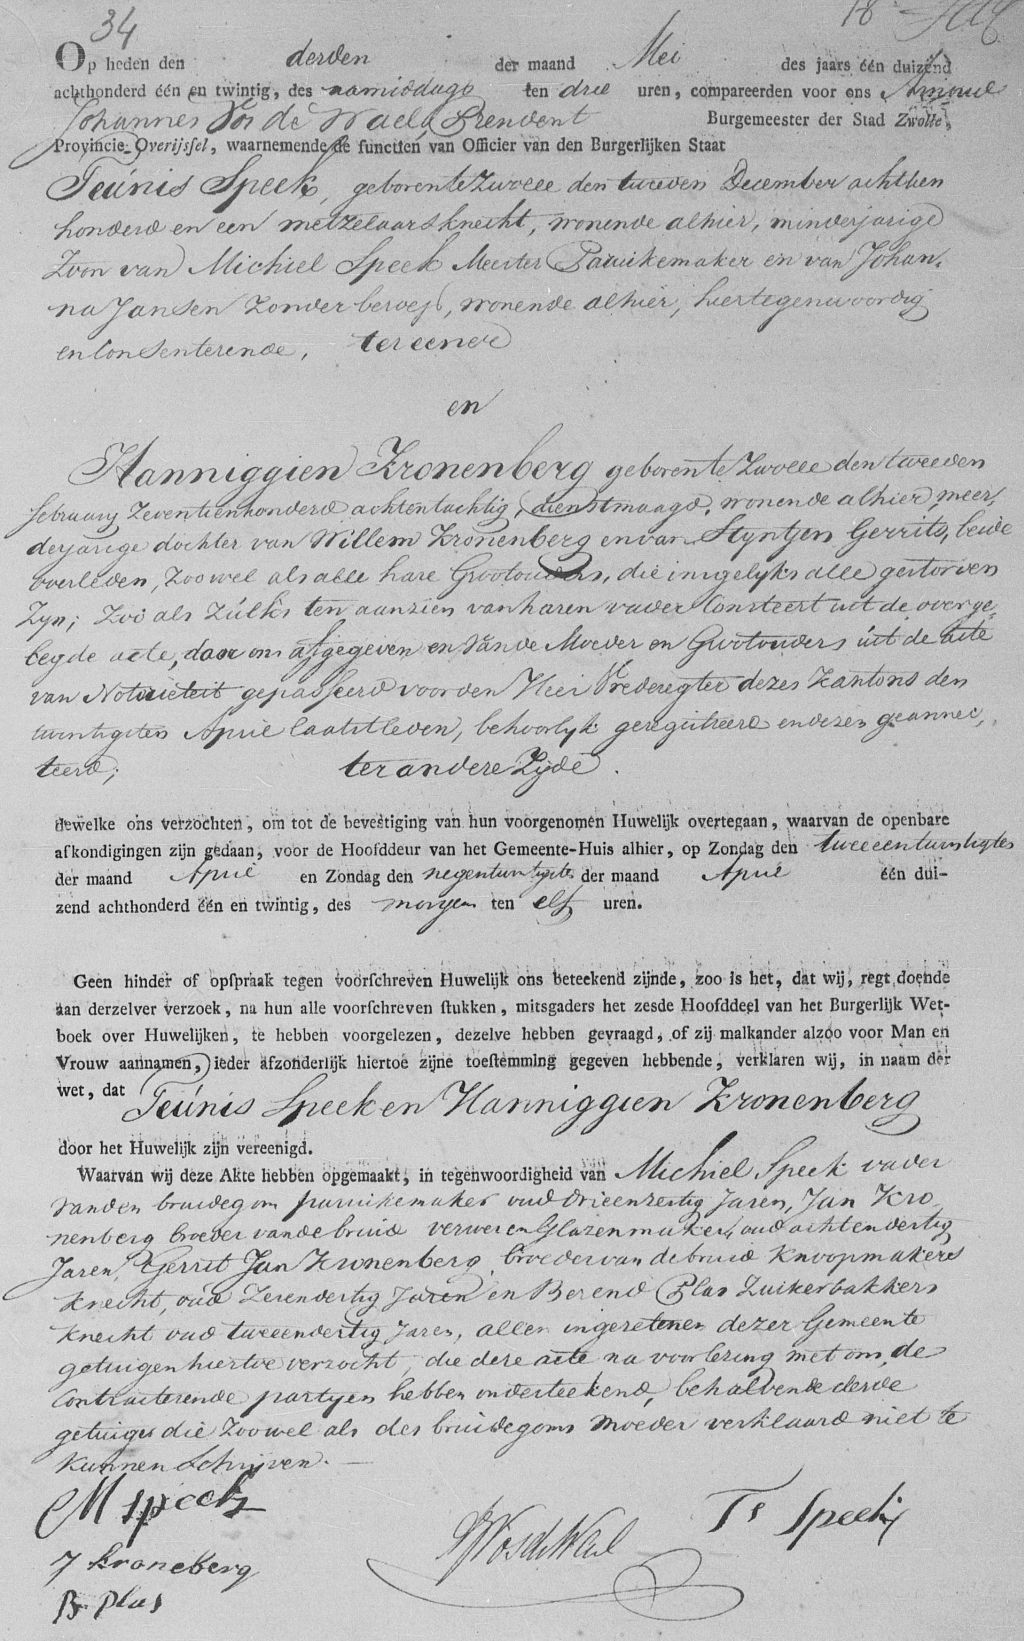 34
18
Op heden den derden der maand Mei des jaars één duizend
achthonderd één en twintig, des namiddags ten drie uren, compareerden voor ons Arnout
Johannes Vos de Wael, President Burgemeester der Stad Zwolle,
Provincie Overijssel, waarnemende de functien van Officier van den Burgerlijken Staat
Teúnis Speek, geboren te Zwolle den tweeden December achttien
honderd en een metzelaarsknecht, wonende alhier, minderjarige
Zoon van Michiel Speek Meester Paruikemaker en van Johan-
na Jansen Zonder beroep, wonende alhier, hiertegenwoordig
en Consenterende, ter eener
en
Hanniggien Kronenberg geboren te Zwolle den tweeden
february Zeventienhonderd achtentachtig, dienstmaagd, wonende alhier, meer
derjarige dochter van Willem Kronenberg en van Styntjen Gerrits, beide
overleden, Zoowel als alle hare Grootouders, die insgelyks alle gestorven
Zyn; Zoo als Zúlks ten aanzien van haren vader Consteert uit de overge-
legde acte, door ons afgegeven en van de Moeder en Grootouders úit de acte
van Notorieteit gepasseerd voor den Heer Vrederegter dezes Kantons den
twintigsten April laatstleden, behoorlyk geregistreerd en dezen geannec-
teerd; ter andere Zyde.
dewelke ons verzochten, om tot de bevestiging van hun voorgenomen Huwelijk overtegaan, waarvan de openbare
afkondigingen zijn gedaan, voor de Hoofddeur van het Gemeente-Huis alhier, op Zondag den tweeentwintigsten
der maand April en Zondag den negentwintigste der maand April één dui-
zend achthonderd één en twintig, des morgen ten elf uren.
Geen hinder of opspraak tegen voorschreven Huwelijk ons beteekend zijnde, zoo is het, dat wij, regt doende
aan derzelver verzoek, na hun alle voorschreven stukken, mitsgaders het zesde Hoofddeel van het Burgerlijk Wet-
boek over Huwelijken, te hebben voorgelezen, dezelve hebben gevraagd, of zij malkander alzoo voor Man en
Vrouw aannamen, ieder afzonderlijk hiertoe zijne toestemming gegeven hebbende, verklaren wij, in naam der
wet, dat Teúnis Speek en Hanniggien Kronenberg
door het Huwelijk zijn vereenigd.
Waarvan wij deze Akte hebben opgemaakt, in tegenwoordigheid van Michiel Speek vader
van den bruidegom paruikemaker oud drieenzestig Jaren, Jan Kro
nenberg broeder van de bruid verwer en Glazenmaker, oud achtendertig
Jaren, Gerrit Jan Kronenberg, broeder van de bruid Knoopmakers
Knecht, oud Zevendertig Jaren en Berend Plas Zuikerbakkers
Knecht oud tweeendertig Jaren, allen ingezetenen dezer Gemeente
getuigen hiertoe verzocht, die deze acte na voorlezing met ons, de
Contracterende partyen hebben onderteekend, behalven de derde
getuige die Zoowel als des bruidegoms Moeder verklaard niet te
Kunnen Schrijven.
M speek
Ts Speek
AJVosdeWael
J kroneberg
B. plas